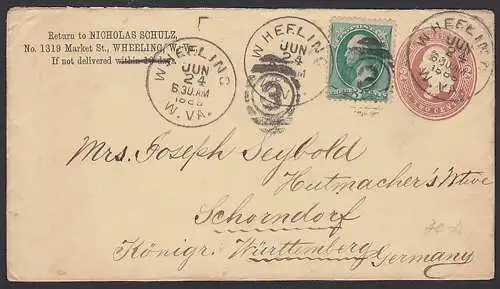 Return to NICHOLAS SCHULZ,
No. 1319 Market St., WHEELING, W. Va.
If not delivered within 10 days
WHEELING
JUN
24
630AM
1886
W. VA.
WHEELING
JUN
24
WHEELING
JUN
630AM
W. VA.
Mrs. Joseph Seybold
Hutmacher's Wtwe
Schorndorf
Königr. Württemberg
Germany